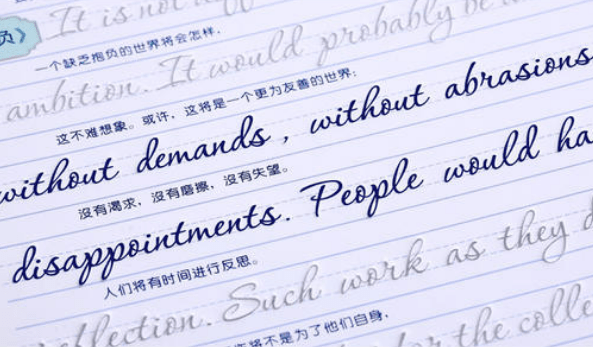 It is not
负》
一个缺乏抱负的世界将会怎样，
ambition. It would probably be
这不难想象。或许，这将是一个更为友善的世界：
without demands , without abrasions
沒有渴求，沒有磨擦，沒有失望。
disappointments. People would ha
人们将有时间进行反思。
flection. Such work as they d
将不是为了他们自身，
the colle